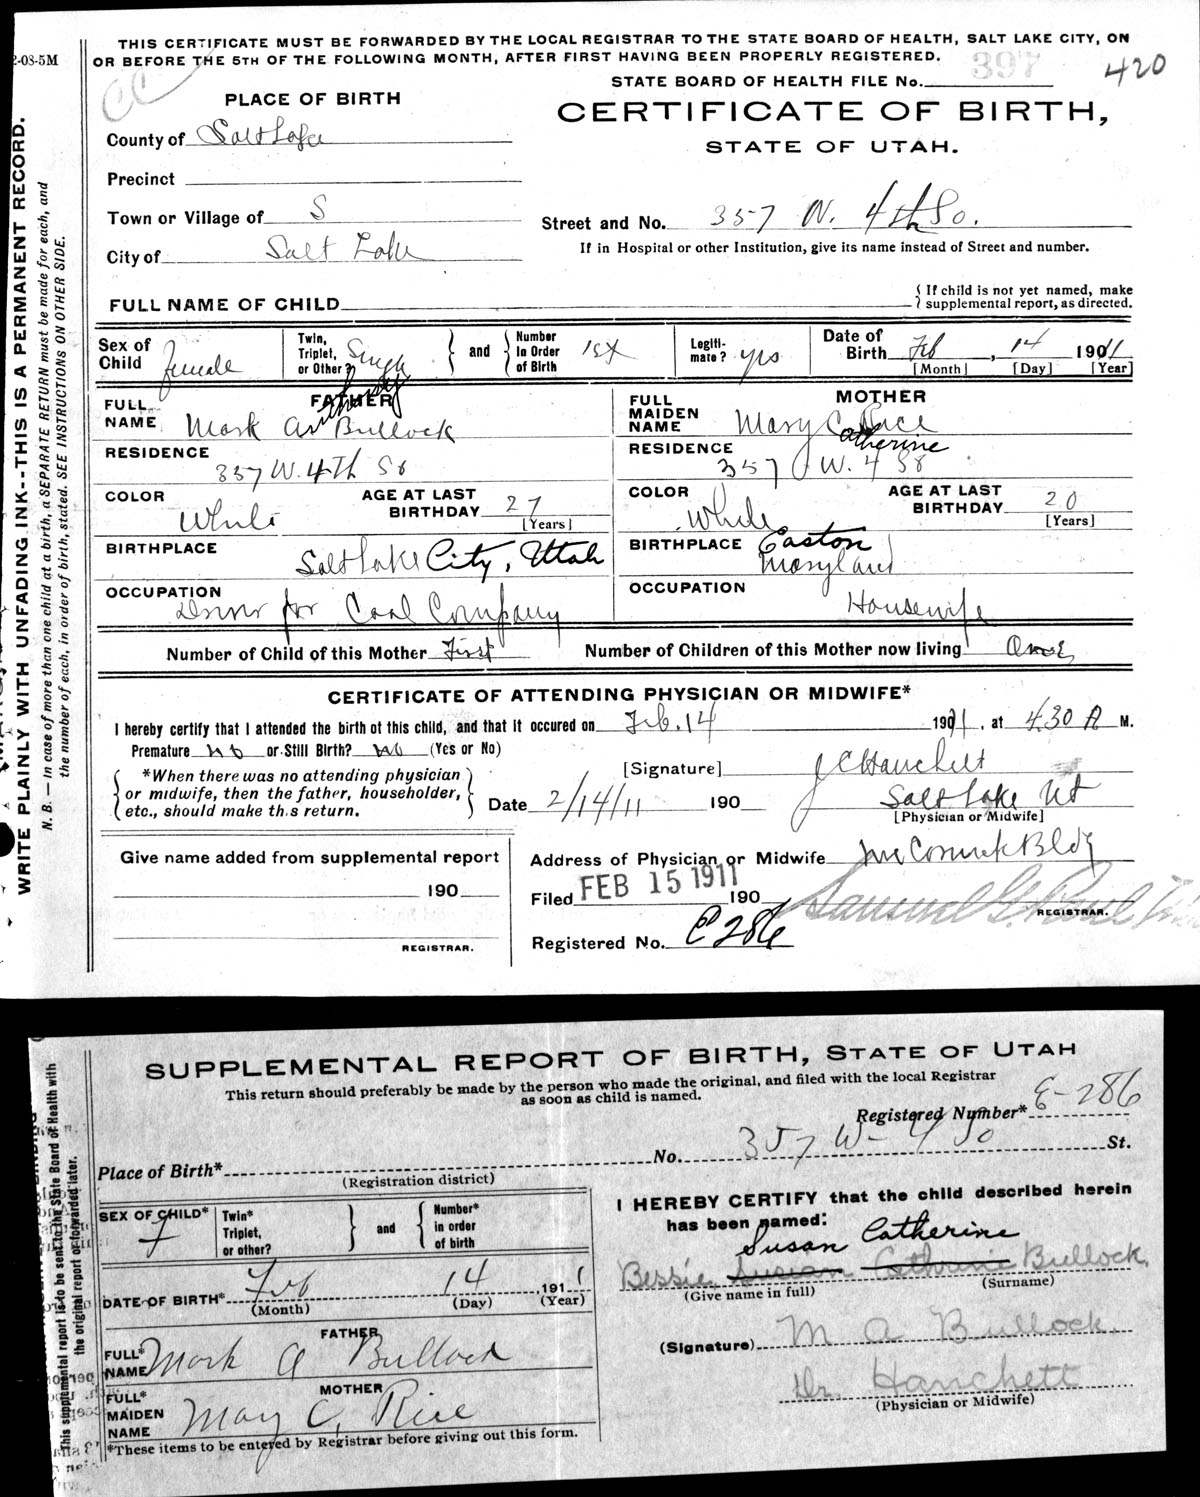 THIS CERTIFICATE MUST BE FORWARDED BY THE LOCAL REGISTRAR TO THE STATE BOARD OF HEALTH, SALT LAKE CITY, ON
OR BEFORE THE 5TH OF THE FOLLOWING MONTH, AFTER FIRST HAVING BEEN PROPERLY REGISTERED.
2-08-5M
STATE BOARD OF HEALTH FILE No. 397
420
CC
PLACE OF BIRTH
CERTIFICATE OF BIRTH,
STATE OF UTAH.
County of Salt Lake
Precinct
Town or Village of S
Street and No. 357 W. 4th So.
City of Salt Lake
If in Hospital or other Institution, give its name instead of Street and number.
FULL NAME OF CHILD
{ If child is not yet named, make
supplemental report, as directed.
Sex of Child female
Twin, Triplet, or Other? Single
and
Number In Order of Birth 1st
Legiti-mate? yes
Date of Birth Feb, 14 1911
[Month] [Day] [Year]
FATHER
FULL NAME Mark Bullock
RESIDENCE 357 W. 4th So
COLOR White
AGE AT LAST BIRTHDAY 27
[Years]
BIRTHPLACE Salt Lake City, Utah
OCCUPATION Driver for Coal Company
MOTHER
FULL MAIDEN NAME Mary C Rice
Catherine
RESIDENCE 357 W. 4 So
COLOR White
AGE AT LAST BIRTHDAY 20
[Years]
BIRTHPLACE Easton
Maryland
OCCUPATION Housewife
Number of Child of this Mother First
Number of Children of this Mother now living One
CERTIFICATE OF ATTENDING PHYSICIAN OR MIDWIFE*
I hereby certify that I attended the birth of this child, and that it occured on Feb. 14 1911, at 4.30 A M.
Premature no or Still Birth? no (Yes or No)
*When there was no attending physician
or midwife, then the father, householder,
etc., should make this return.
[Signature] J C Hanchett
Date 2/14/11 190
Salt Lake Ut
[Physician or Midwife]
Give name added from supplemental report
190
REGISTRAR.
Address of Physician or Midwife McCornick Bldg
Filed FEB 15 1911 190
Samuel G. Paul
REGISTRAR.
Registered No. E286
WRITE PLAINLY WITH UNFADING INK--THIS IS A PERMANENT RECORD.
N. B. — In case of more than one child at birth, a SEPARATE RETURN must be made for each, and
the number of each, in order of birth, stated. SEE INSTRUCTIONS ON OTHER SIDE.
SUPPLEMENTAL REPORT OF BIRTH, STATE OF UTAH
This return should preferably be made by the person who made the original, and filed with the local Registrar
as soon as child is named.
Registered Number* E-286
Place of Birth* No. 357 W-4 So St.
(Registration district)
SEX OF CHILD* F
Twin* Triplet, or other?
and
Number* in order of birth
DATE OF BIRTH* Feb 14 1911
(Month) (Day) (Year)
FATHER
FULL* NAME Mark A Bullock
MOTHER
FULL* MAIDEN NAME Mary C. Rice
*These items to be entered by Registrar before giving out this form.
I HEREBY CERTIFY that the child described herein
has been named:
Susan Catherine
Bessie Susian Cathrine Bullock.
(Give name in full) (Surname)
(Signature) M A Bullock.
Dr. Hanchett
(Physician or Midwife)
This supplemental report is to be sent to the State Board of Health with
the original report or forwarded later.